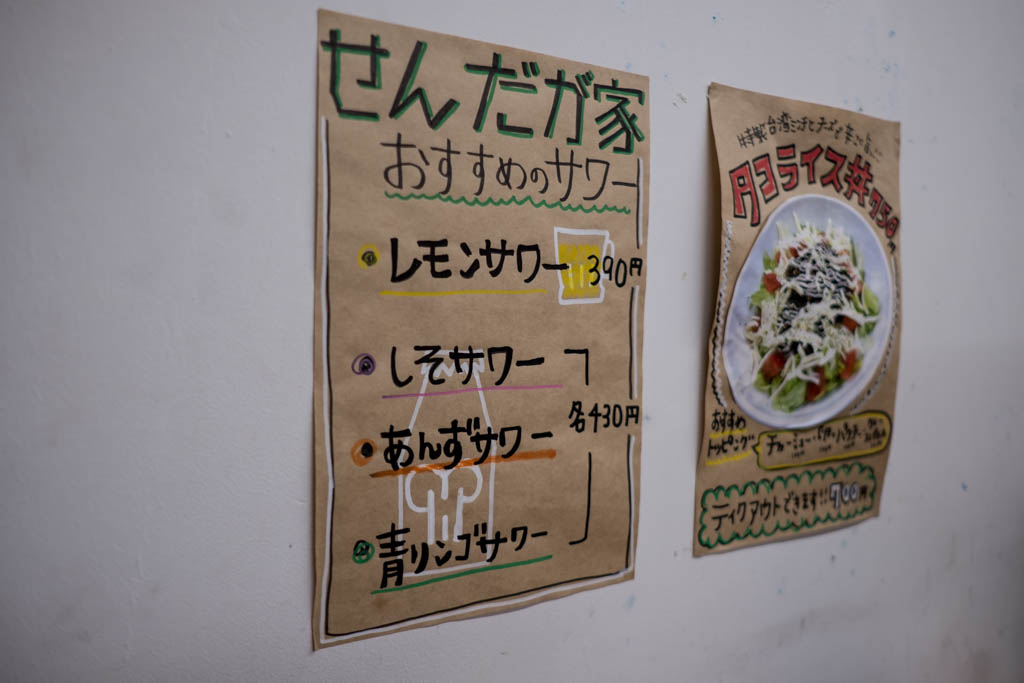 せんだが家
おすすめのサワー
レモンサワー 390円
しそサワー
各430円
あんずサワー
青リンゴサワー
特製台湾ミンチとチーズで
タコライス丼750円
おすすめ
トッピング
テイクアウトできます!!700円